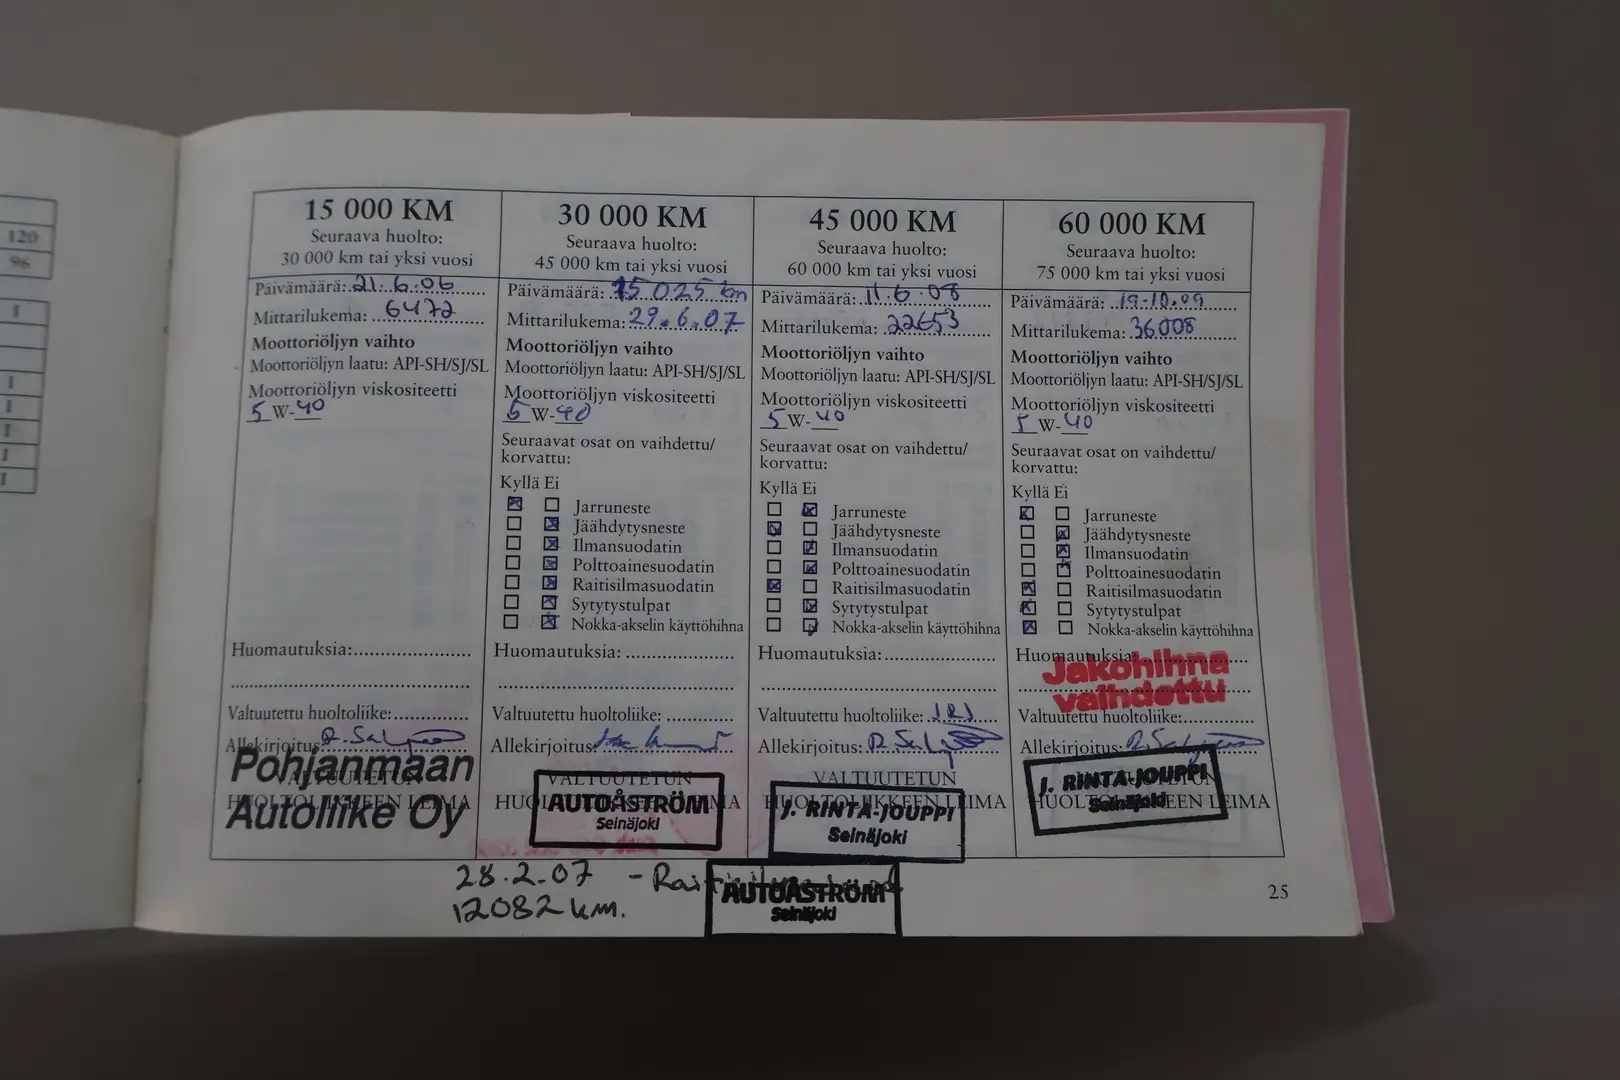 120
96
I
I
I
I
I
I
15 000 KM
Seuraava huolto:
30 000 km tai yksi vuosi
Päivämäärä: 21.6.06
Mittarilukema: 6472
Moottoriöljyn vaihto
Moottoriöljyn laatu: API-SH/SJ/SL
Moottoriöljyn viskositeetti
5 W-40
Huomautuksia:
Valtuutettu huoltoliike:
Allekirjoitus:
VALTUUTETUN
HUOLTOLIIKKEEN LEIMA
Pohjanmaan
Autoliike Oy
30 000 KM
Seuraava huolto:
45 000 km tai yksi vuosi
Päivämäärä: 15025 km
Mittarilukema: 29.6.07
Moottoriöljyn vaihto
Moottoriöljyn laatu: API-SH/SJ/SL
Moottoriöljyn viskositeetti
5 W-40
Seuraavat osat on vaihdettu/
korvattu:
Kyllä Ei
Jarruneste
Jäähdytysneste
Ilmansuodatin
Polttoainesuodatin
Raitisilmasuodatin
Sytytystulpat
Nokka-akselin käyttöhihna
Huomautuksia:
Valtuutettu huoltoliike:
Allekirjoitus:
VALTUUTETUN
HUOLTOLIIKKEEN LEIMA
AUTOÅSTRÖM
Seinäjoki
45 000 KM
Seuraava huolto:
60 000 km tai yksi vuosi
Päivämäärä: 11.6.08
Mittarilukema: 22653
Moottoriöljyn vaihto
Moottoriöljyn laatu: API-SH/SJ/SL
Moottoriöljyn viskositeetti
5 W-40
Seuraavat osat on vaihdettu/
korvattu:
Kyllä Ei
Jarruneste
Jäähdytysneste
Ilmansuodatin
Polttoainesuodatin
Raitisilmasuodatin
Sytytystulpat
Nokka-akselin käyttöhihna
Huomautuksia:
Valtuutettu huoltoliike: JRJ
Allekirjoitus:
VALTUUTETUN
HUOLTOLIIKKEEN LEIMA
J. RINTA-JOUPPI
Seinäjoki
60 000 KM
Seuraava huolto:
75 000 km tai yksi vuosi
Päivämäärä: 19.10.09
Mittarilukema: 36008
Moottoriöljyn vaihto
Moottoriöljyn laatu: API-SH/SJ/SL
Moottoriöljyn viskositeetti
5 W-40
Seuraavat osat on vaihdettu/
korvattu:
Kyllä Ei
Jarruneste
Jäähdytysneste
Ilmansuodatin
Polttoainesuodatin
Raitisilmasuodatin
Sytytystulpat
Nokka-akselin käyttöhihna
Huomautuksia:
Jakohihna
vaihdettu
Valtuutettu huoltoliike:
Allekirjoitus:
HUOLTOLIIKKEEN LEIMA
J. RINTA-JOUPPI
Seinäjoki
28.2.07 -
12082 km.
AUTOÅSTRÖM
Seinäjoki
25